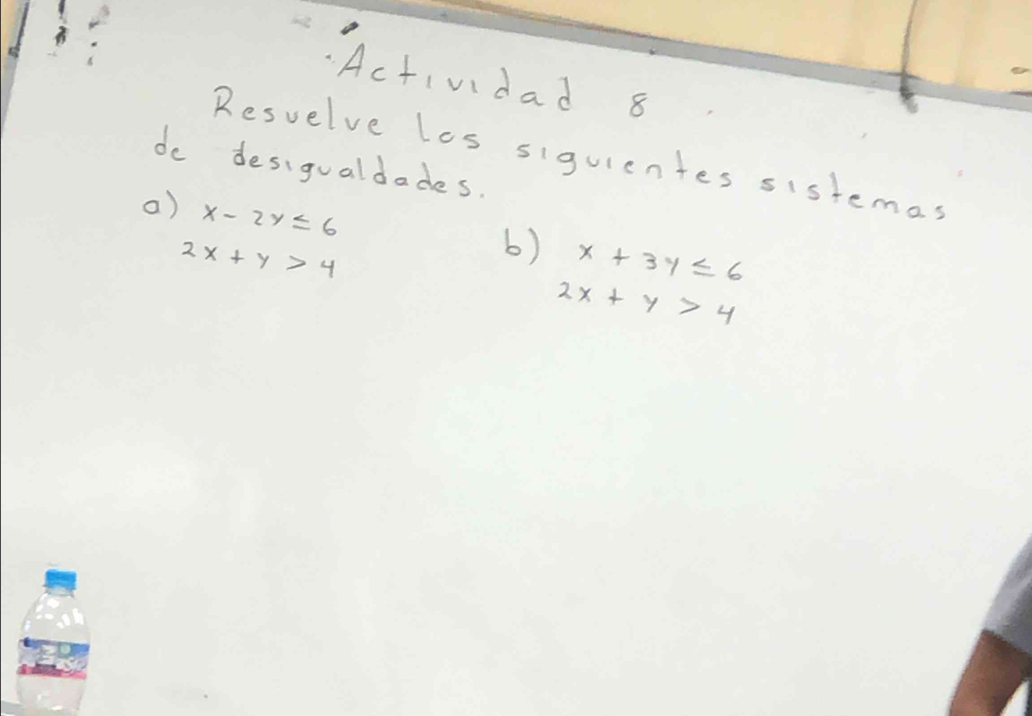 Actividad 8
Resuelve los siguientes sistemas
de desigualdades.
a) x - 2y ≤ 6
2x + y > 4
b) x + 3y ≤ 6
2x + y > 4